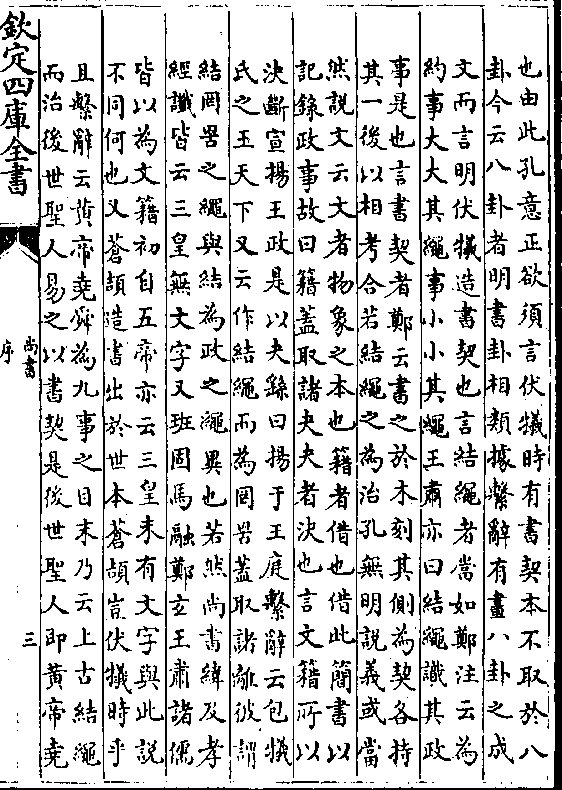 也由此孔意正欲須言伏犧時有書契本不取於八
卦今云八卦者明書卦相類據繫辭有畫八卦之成
文而言明伏犧造書契也言結繩者當如鄭注云為
約事大大其繩事小小其繩王肅亦曰結繩識其政
事是也言書契者鄭云書之於木刻其側為契各持
其一後以相考合若結繩之為治孔無明說義或當
然說文云文者物象之本也籍者借也借此簡書以
記錄政事故曰籍蓋取諸夬夬者決也言文籍所以
決斷宣揚王政是以夬繇曰揚于王庭繫辭云包犧
氏之王天下又云作結繩而為罔罟蓋取諸離彼謂
結罔罟之繩與結為政之繩異也若然尚書緯及孝
經讖皆云三皇無文字又班固馬融鄭玄王肅諸儒
皆以為文籍初自五帝亦云三皇未有文字與此說
不同何也又蒼頡造書出於世本蒼頡豈伏犧時乎
且繫辭云黃帝堯舜為九事之目末乃云上古結繩
而治後世聖人易之以書契是後世聖人即黃帝堯
欽定四庫全書
尚書
序
三